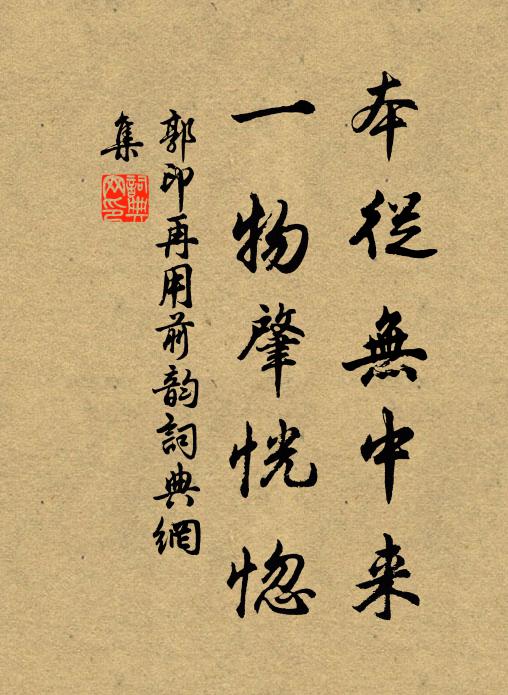 本從無中来
一物肇恍惚
郭印再用前韵詞典網
集
詞典网印